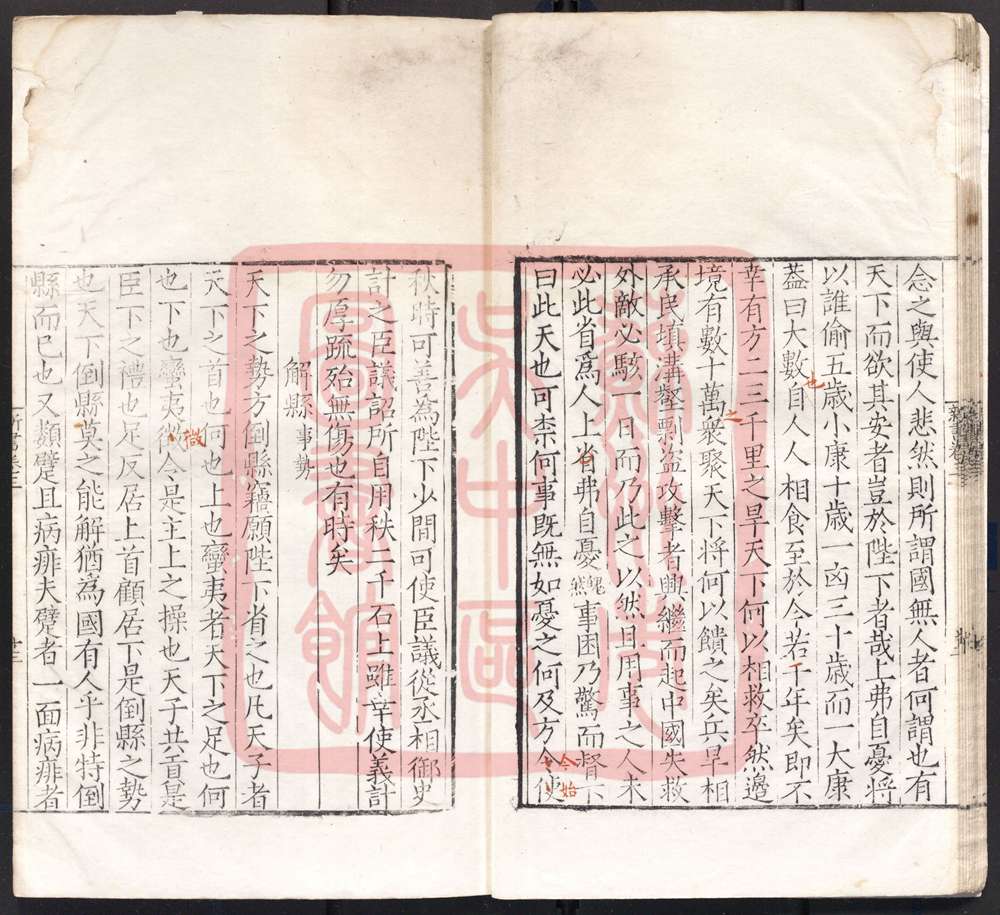 念之與使人悲然則所謂國無人者何謂也有
天下而欲其安者豈於陛下者哉上弗自憂將
以誰偷五歲小康十歲一凶三十歲而一大康
蓋曰大數也自人人相食至於今若千年矣即不
幸有方二三千里之旱天下何以相救卒然邊
境有數十萬衆聚天下將何以饋之矣兵旱相
承民塡溝壑剽盗攻擊者興繼而起中國失救
外敵必駭一日而乃此之以然且用事之人未
必此省爲人上省弗自憂䰟然事困乃驚而督下
曰此天也可柰何事既無如憂之何及方今始使
秋時可善為陛下少間可使臣議從丞相御史
計之臣議詔所自用秩二千石上雖幸使義計
勿厚疏殆無傷也有時矣
解縣 事勢
天下之勢方倒縣竊願陛下省之也凡天子者
天下之首也何也上也蠻夷者天下之足也何
也下也蠻夷徵令是主上之操也天子共貢是
臣下之禮也足反居上首顧居下是倒縣之勢
也天下倒縣莫之能解猶為國有人乎非特倒
縣而已也又纇躄且病痱夫躄者一面病痱者
新書卷三
廿三
蘇州市
吴中區
圖書館